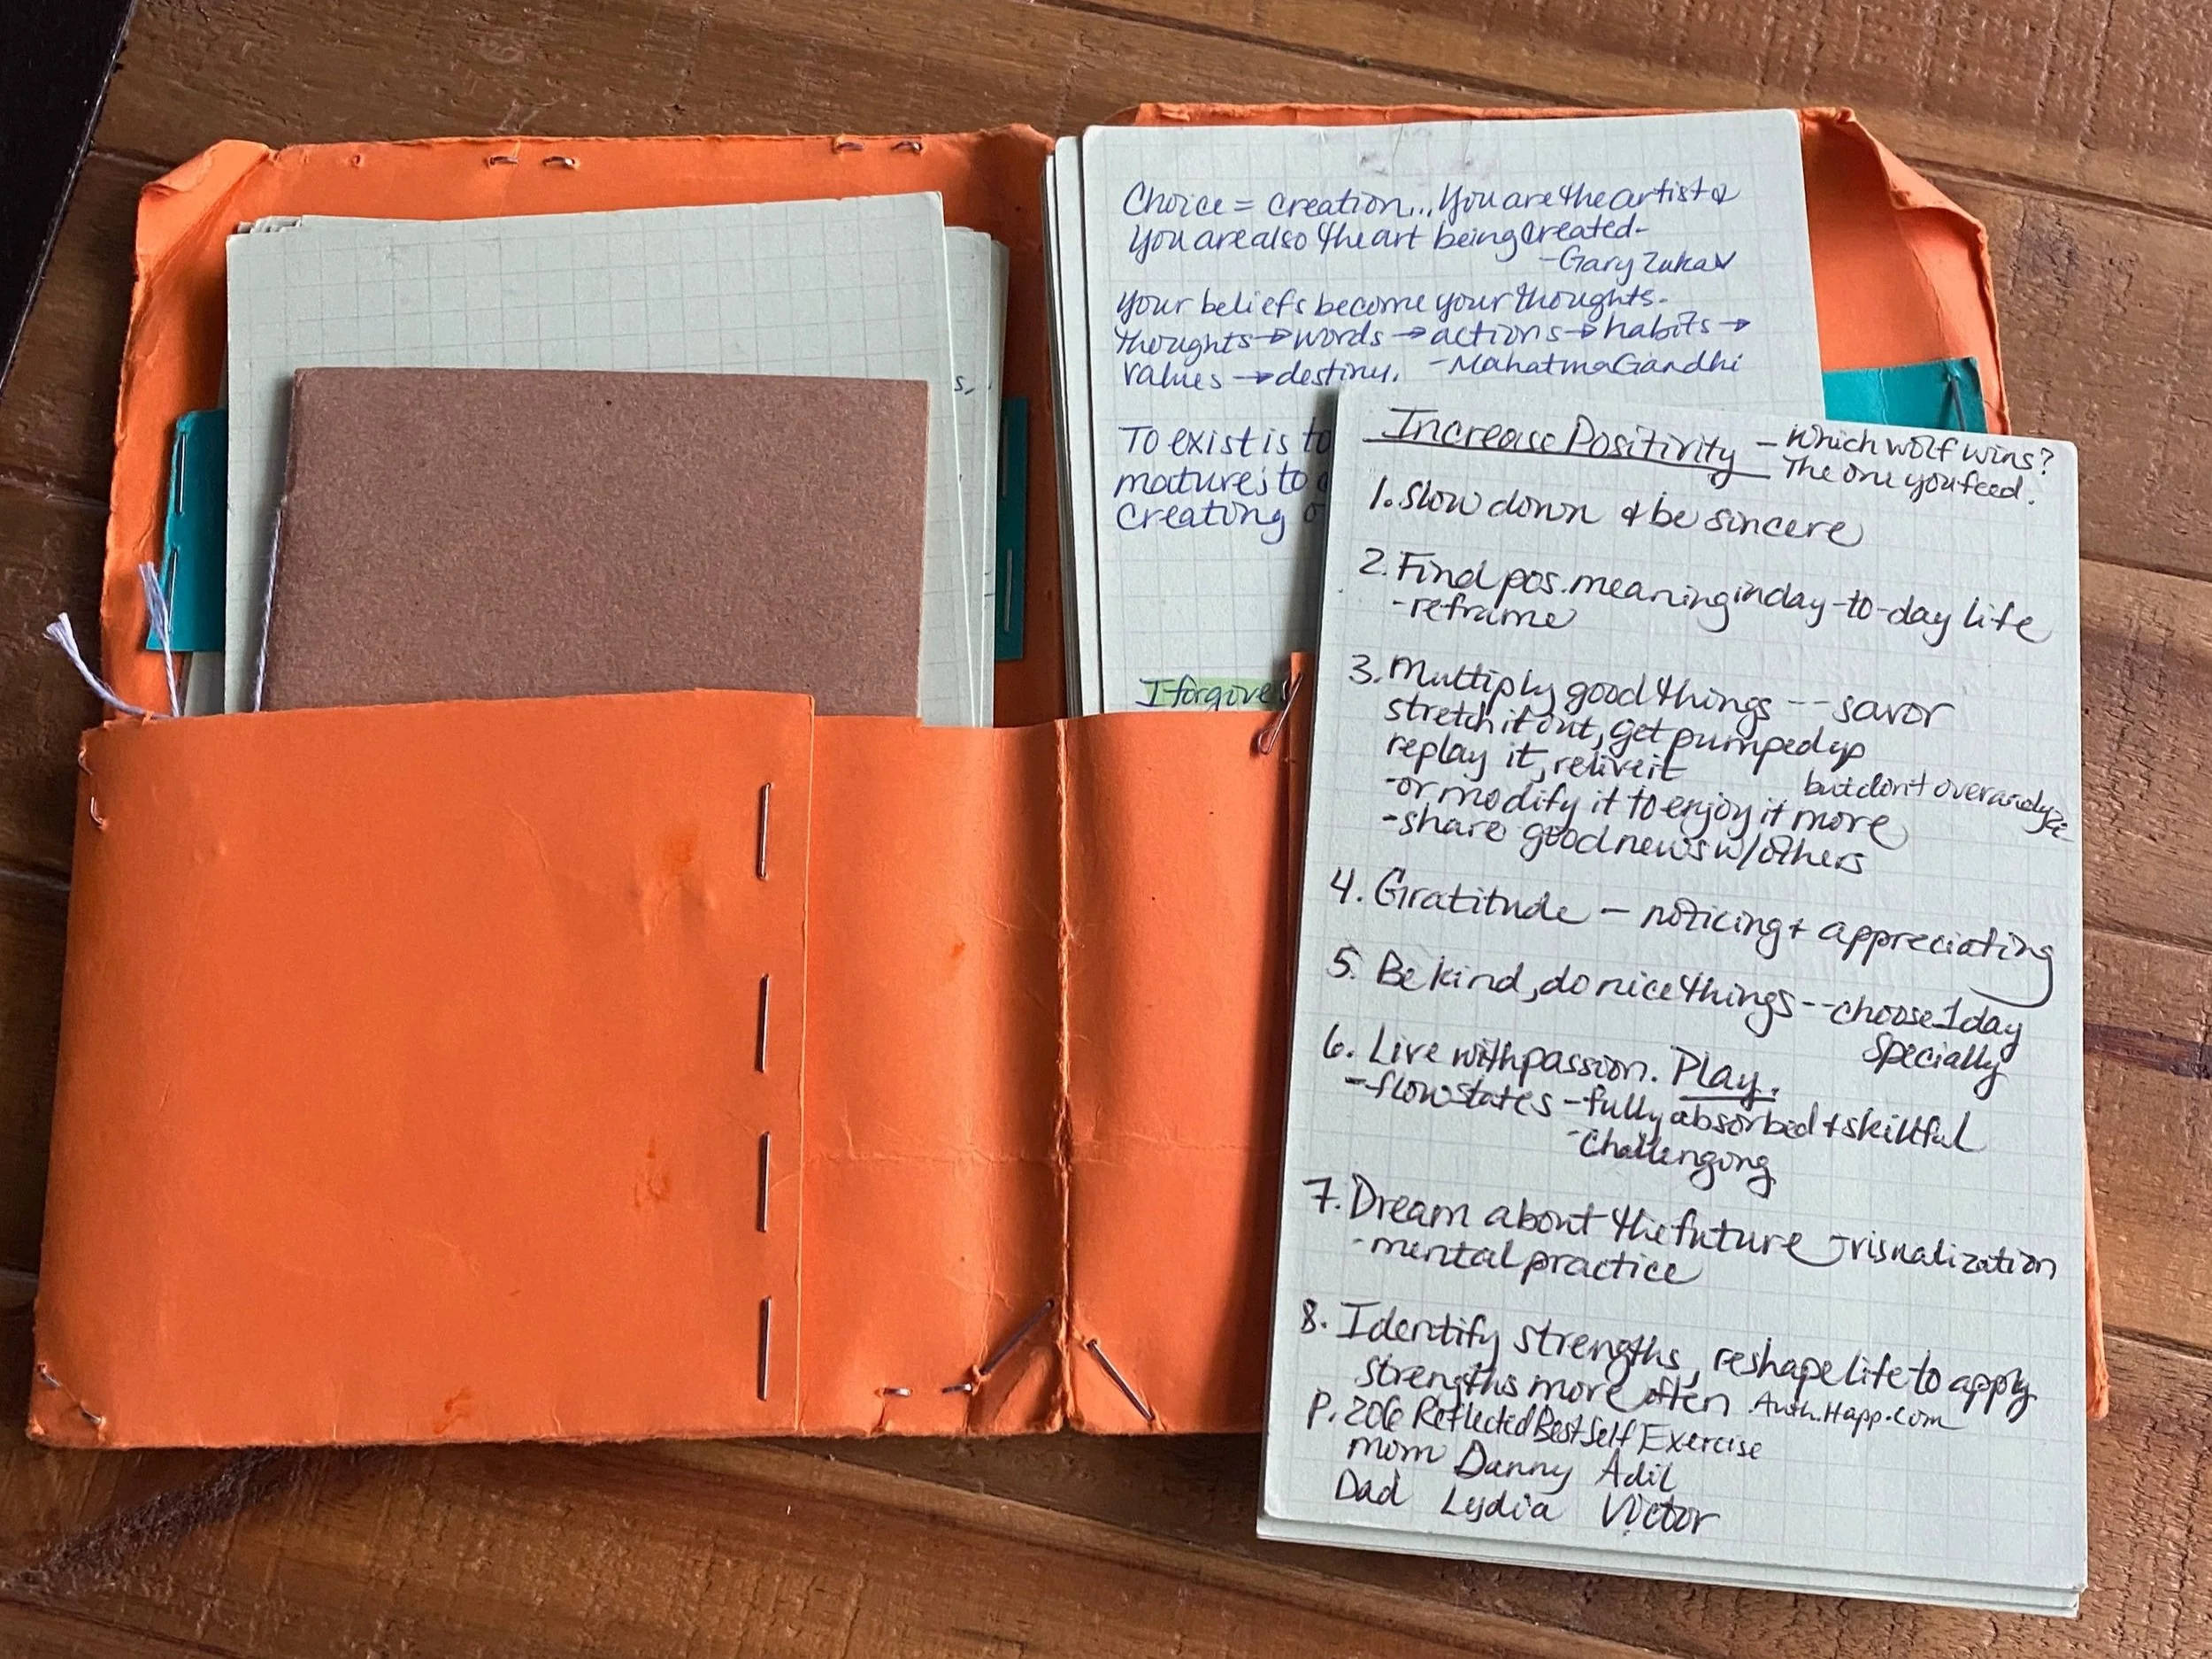 s,
Choice = creation... You are the artist &
You are also the art being created-
-Gary Zukav
Your beliefs become your thoughts-
thoughts → words → actions → habits →
values → destiny. -Mahatma Gandhi
To exist is to
mature; to
creating
I forgive
Increase Positivity - Which wolf wins?
The one you feed.
1. Slow down & be sincere
2. Find pos. meaning in day-to-day life
-reframe
3. Multiply good things -- savor
stretch it out, get pumped up
replay it, relive it
but don't overanalyze
-or modify it to enjoy it more
-share good news w/others
4. Gratitude - noticing + appreciating
5. Be kind, do nice things -- choose 1 day
specially
6. Live with passion. Play.
-flow states - fully absorbed + skillful
-challenging
7. Dream about the future - visualization
-mental practice
8. Identify strengths, reshape life to apply
strengths more often Auth.Happ.com
P. 206 Reflected Best Self Exercise
Mom Danny Adil
Dad Lydia Victor